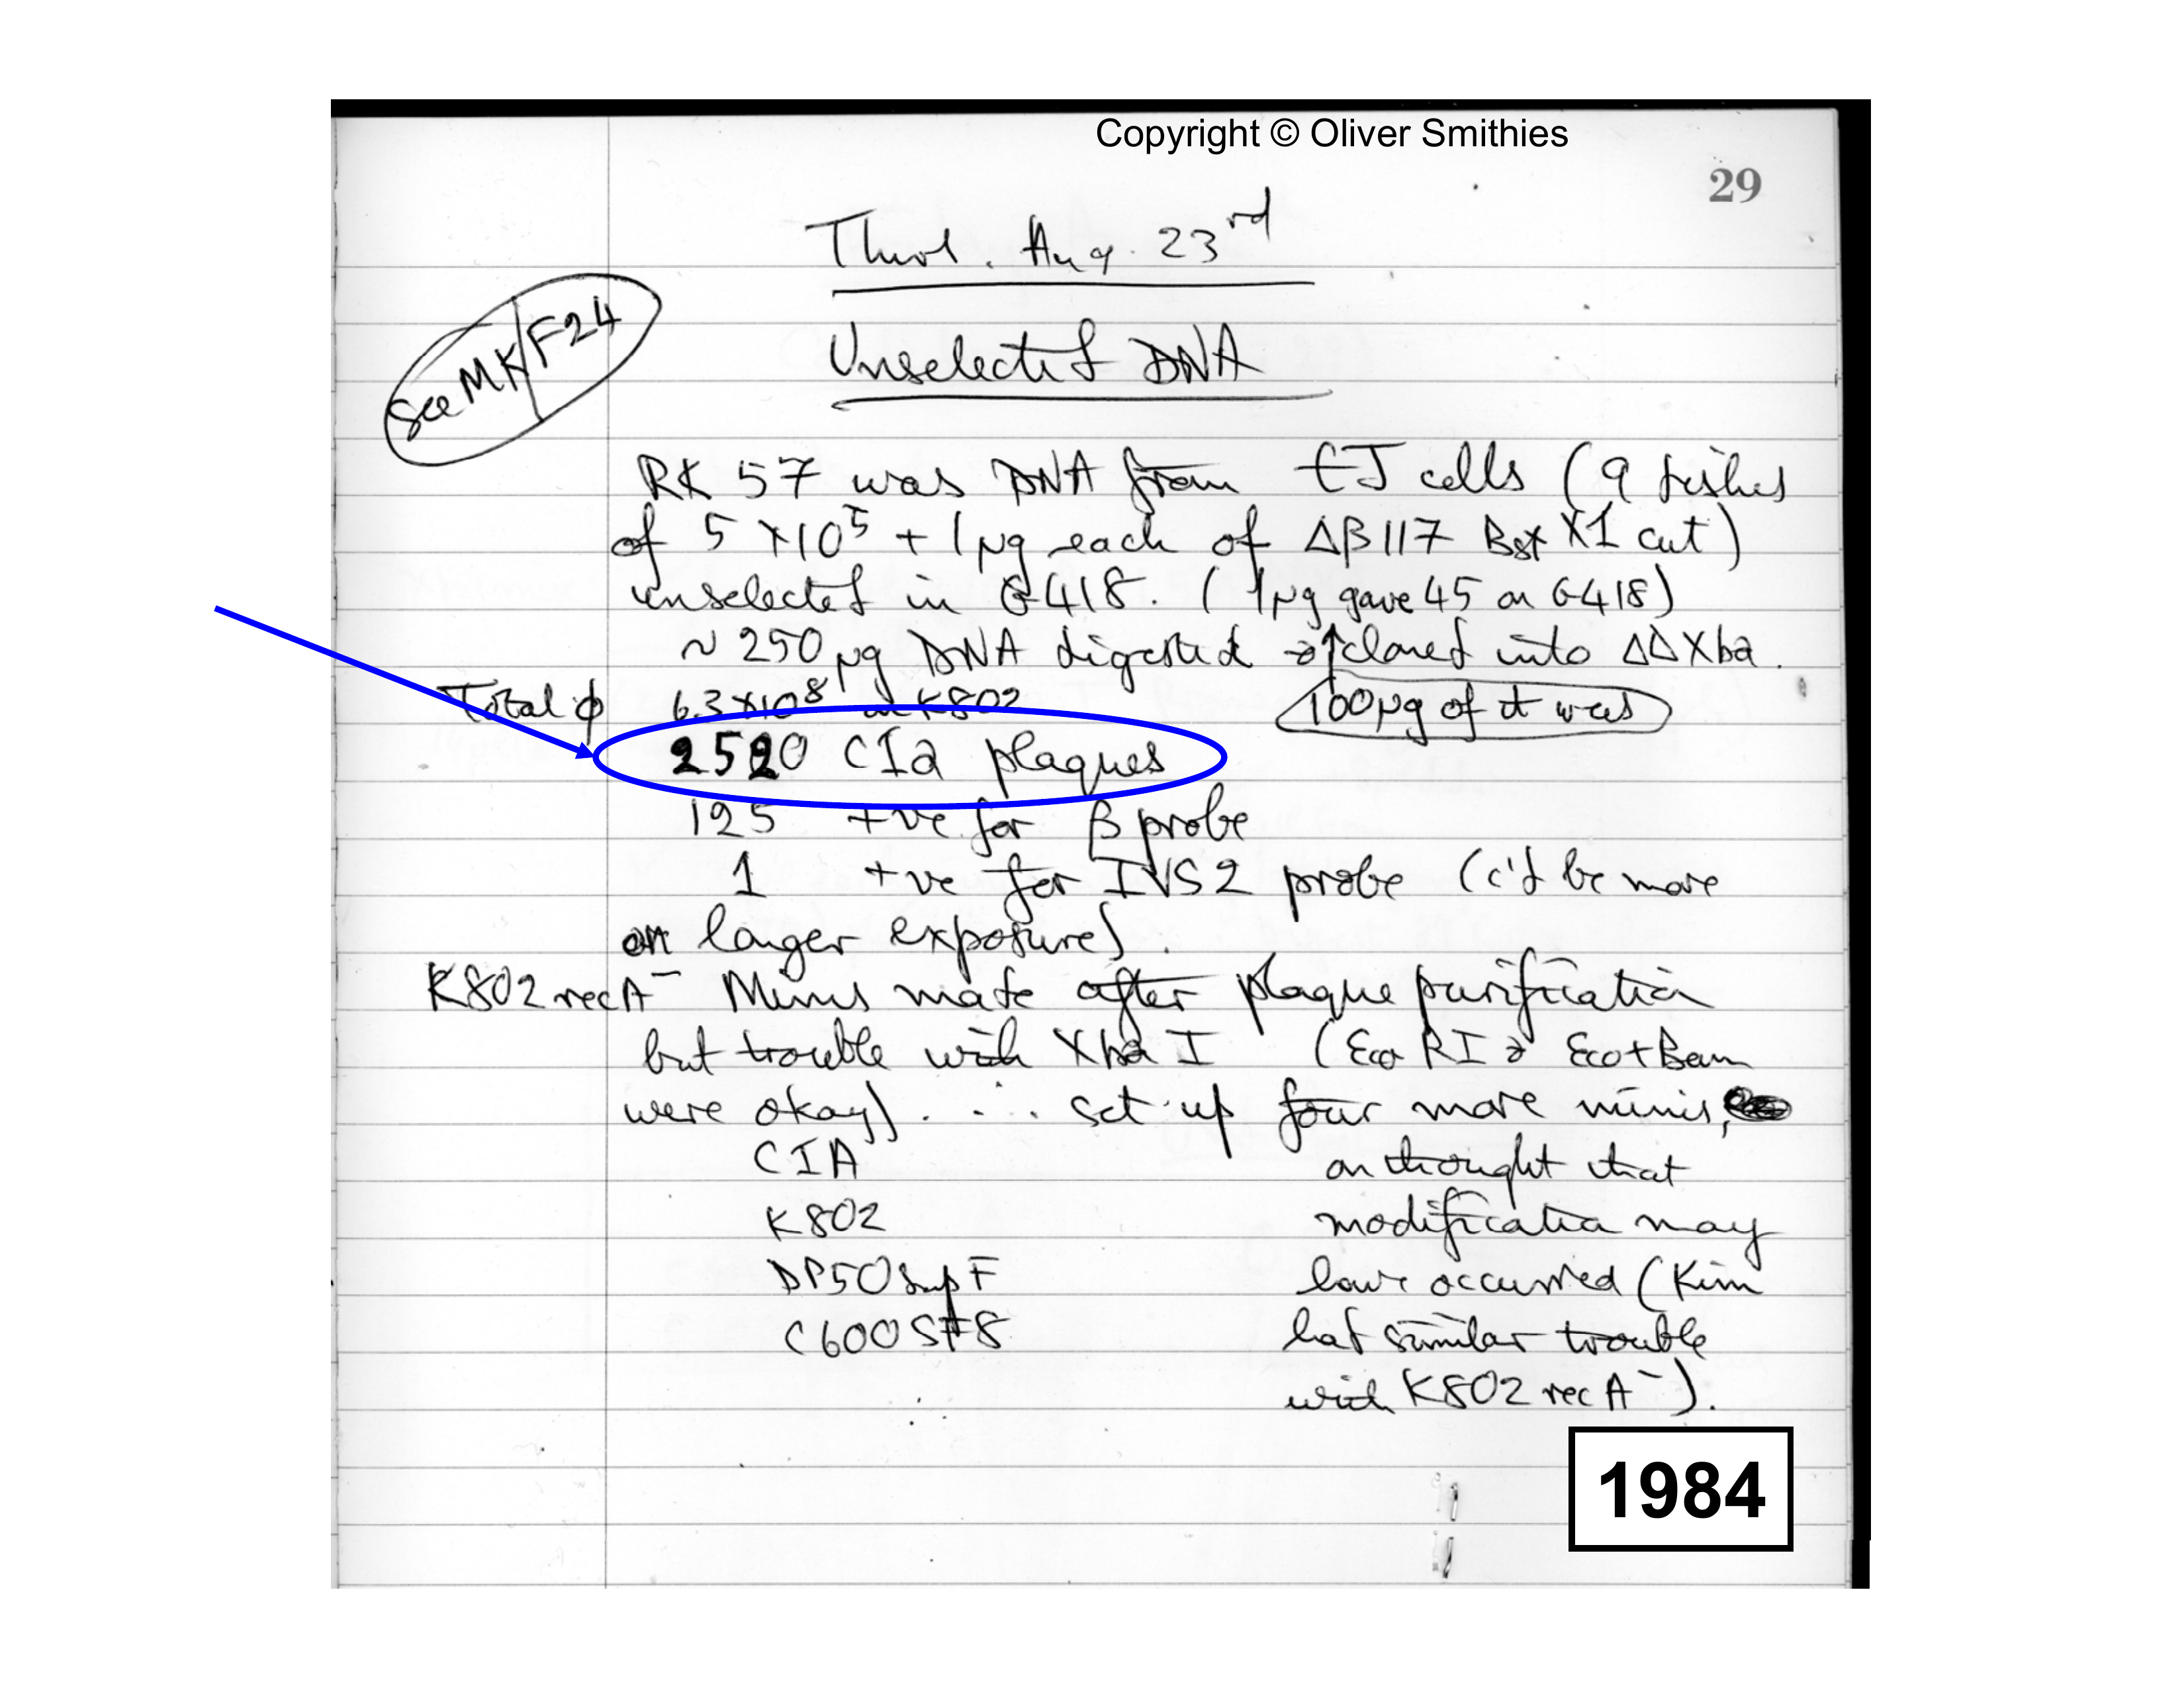 Copyright © Oliver Smithies
29
Thurs. Aug. 23rd
see MK/F24
Unselected DNA
RK 57 was DNA from EJ cells (9 dishes
of 5 x 10^5 + 1 µg each of ΔB117 BstX1 cut)
unselected in G418. (1 µg gave 45 on G418)
~ 250 µg DNA digested → cloned into ΔΔXba.
Total φ 6.3x10^8 on K802
100 µg of it was
2520 CIa plaques
125 +ve for β probe
1 +ve for IVS2 probe (c'd be more
on longer exposure).
K802 recA⁻ Minis made after plaque purification
but trouble with Xba I (Eco RI & Eco+Bam
were okay). ∴ set up four more minis,
CIA on thought that
K802 modification may
DP50supF have occurred (Kim
C600SF8 had similar trouble
with K802 recA⁻).
1984